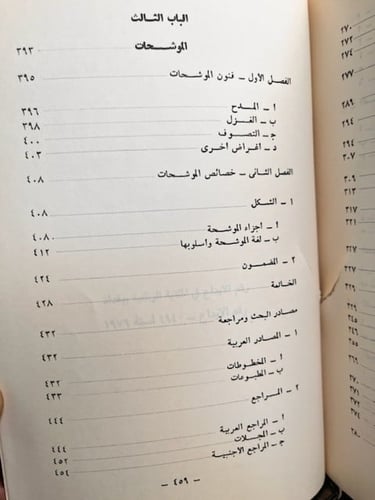 الباب الثالث
الموشحات ٣٩٣
الفصل الأول – فنون الموشحات ٣٩٥
أ – المدح ٣٩٦
ب – الغزل ٣٩٨
ج – التصوف ٤٠٠
د – أغراض أخرى ٤٠٣
الفصل الثانى – خصائص الموشحات ٤٠٨
١ – الشكل ٤٠٨
أ – أجزاء الموشحة ٤٠٨
ب – لغة الموشحة وأسلوبها ٤١٢
٢ – المضمون ٤٢٤
الخاتمة ٤٢٨
مصادر البحث ومراجعة ٤٣٢
١ – المصادر العربية
أ – المخطوطات ٤٣٢
ب – المطبوعات ٤٣٣
٢ – المراجع ٤٤٤
أ – المراجع العربية ٤٤٤
ب – المجلات ٤٥٢
ج – المراجع الأجنبية ٤٥٤
– ٤٥٩ –
٢٧٠
٢٧٢
٢٧٤
٢٧٧
٢٨٩
٢٩٤
٢٩٤
٣٠٧
٣٠٩
٣١٣
٣١٧
٣٢١